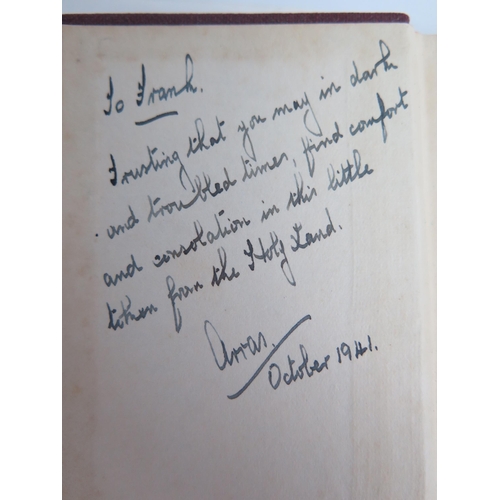 To Frank.
Trusting that you may in dark
and troubled times, find comfort
and consolation in this little
token from the Holy Land.
Arras.
October 1941.